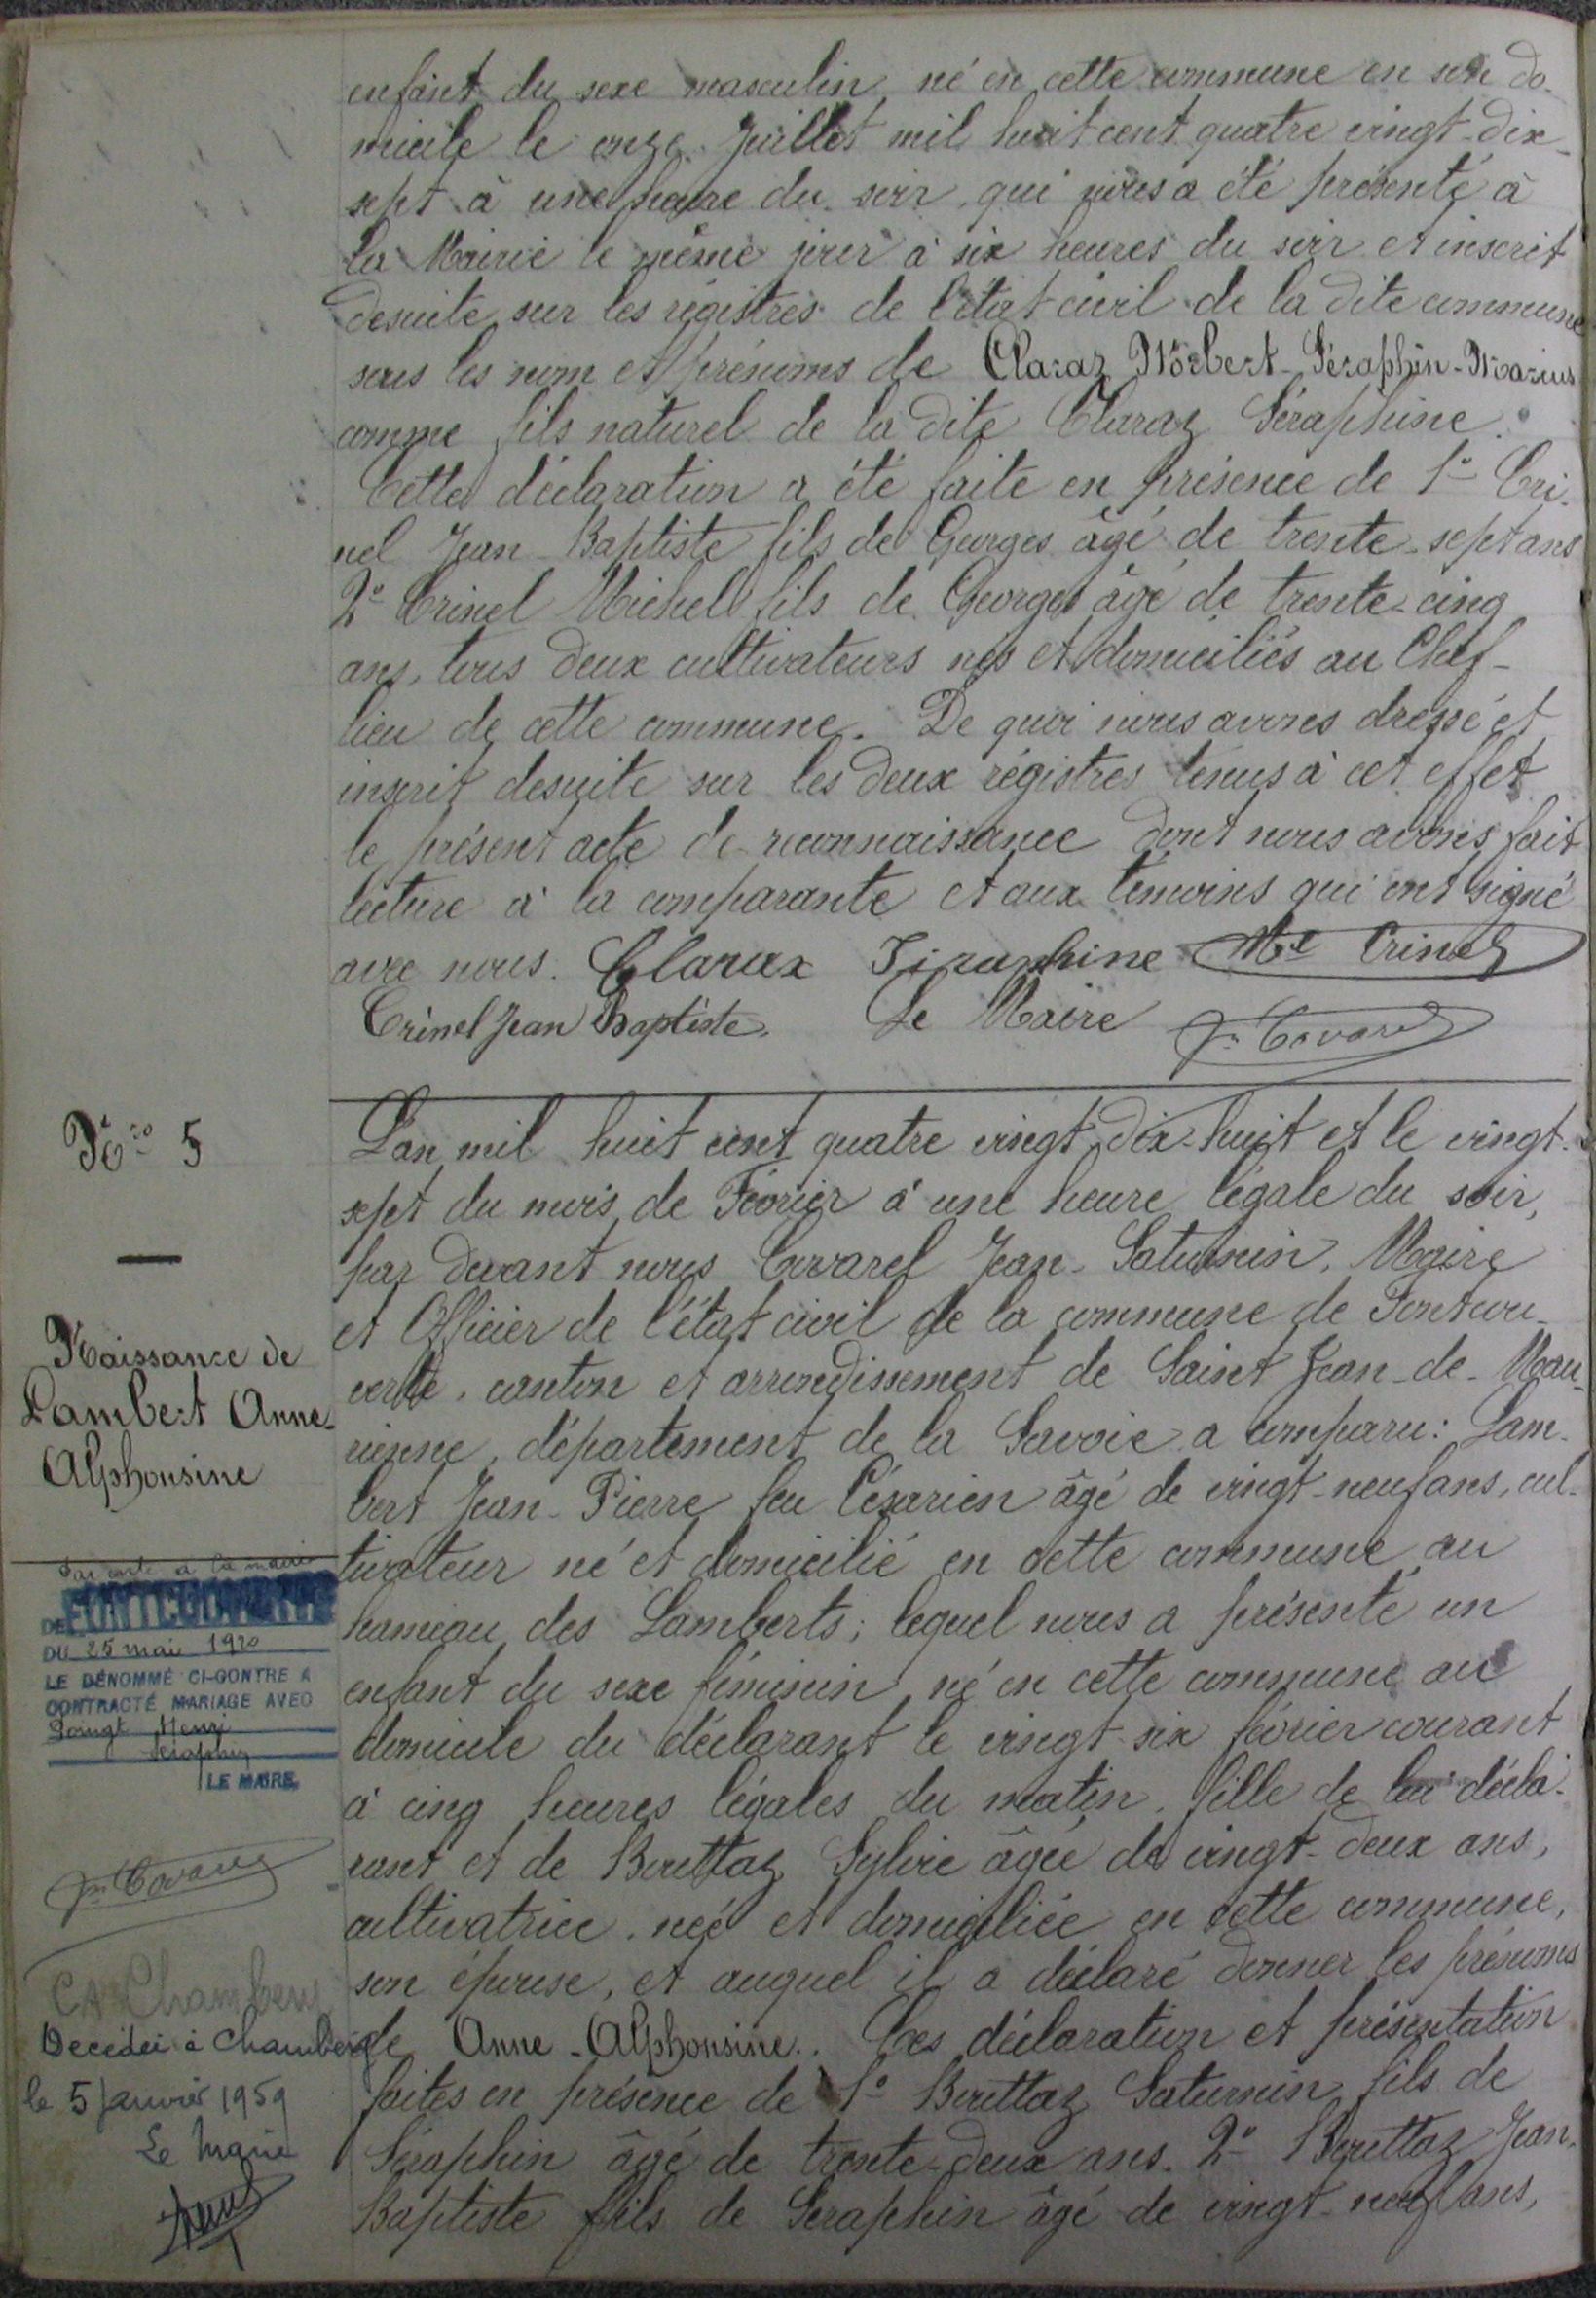 enfant du sexe masculin, né en cette commune en son do-
micile le onze Juillet mil huit cent quatre vingt-dix-
sept à une heure du soir, qui nous a été présenté à
la Mairie le même jour à six heures du soir et inscrit
desuite sur les régistres de l'état civil de la dite commune
sous les nom et prénoms de Claraz Norbert-Séraphin-Marius
comme fils naturel de la dite Claraz Séraphine.
Cette déclaration a été faite en présence de 1° Cri-
nel Jean-Baptiste fils de Georges âgé de trente-sept ans
2° Crinel Michel fils de Georges âgé de trente-cinq
ans, tous deux cultivateurs nés et domiciliés au Chef-
lieu de cette commune. De quoi nous avons dressé et
inscrit desuite sur les deux régistres tenus à cet effet
le présent acte de reconnaissance dont nous avons fait
lecture à la comparante et aux témoins qui ont signé
avec nous. Clarax Siraphine Mel Crinel
Crinel Jean Baptiste. Le Maire Jn Covarel
No 5
Naissance de
Lambert Anne-
Alphonsine
L'an mil huit cent quatre vingt dix-huit et le vingt-
sept du mois de Février à une heure légale du soir,
par devant nous Covarel Jean-Saturnin, Maire
et Officier de l'état civil de la commune de Fontcou-
verte, canton et arrondissement de Saint Jean-de-Mau-
rienne, département de la Savoie a comparu: Lam-
bert Jean-Pierre feu Césarien âgé de vingt-neuf ans, cul-
tivateur né et domicilié en cette commune, au
hameau des Lamberts; lequel nous a présenté un
enfant du sexe féminin, né en cette commune au
domicile du déclarant le vingt-six février courant
à cinq heures légales du matin, fille de lui décla-
rant et de Berettaz Sylvie âgée de vingt-deux ans,
cultivatrice, née et domiciliée en cette commune,
son épouse, et auquel il a déclaré donner les prénoms
de Anne-Alphonsine. Ces déclaration et présentation
faites en présence de 1° Berettaz Saturnin fils de
Séraphin âgé de trente-deux ans. 2° Berettaz Jean-
Baptiste fils de Seraphin âgé de vingt-neuf ans,
Par acte à la mairie
DE FONTCOUVERTE
DU 25 mai 1920
LE DÉNOMMÉ CI-CONTRE A
CONTRACTÉ MARIAGE AVEC
Henri
Séraphin
LE MAIRE,
Jn Covarel
Chambery
Decédée à Chambery
le 5 Janvier 1959
Le Maire